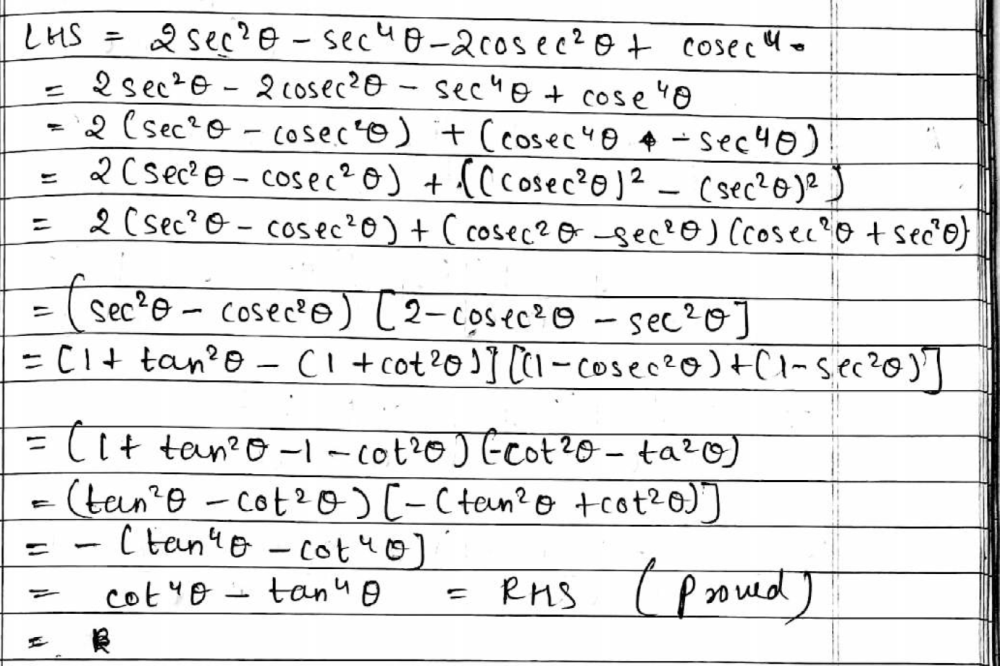 LHS = 2 sec²θ - sec⁴θ - 2cosec²θ + cosec⁴
= 2 sec²θ - 2 cosec²θ - sec⁴θ + cose⁴θ
= 2 (sec²θ - cosec²θ) + (cosec⁴θ - sec⁴θ)
= 2 (sec²θ - cosec²θ) + ((cosec²θ)² - (sec²θ)²)
= 2 (sec²θ - cosec²θ) + (cosec²θ - sec²θ) (cosec²θ + sec²θ)
= (sec²θ - cosec²θ) [2 - cosec²θ - sec²θ]
= [1 + tan²θ - (1 + cot²θ)] [(1 - cosec²θ) + (1 - sec²θ)]
= (1 + tan²θ - 1 - cot²θ) (-cot²θ - ta²θ)
= (tan²θ - cot²θ) [-(tan²θ + cot²θ)]
= - (tan⁴θ - cot⁴θ]
= cot⁴θ - tan⁴θ = RHS (Proved)
=